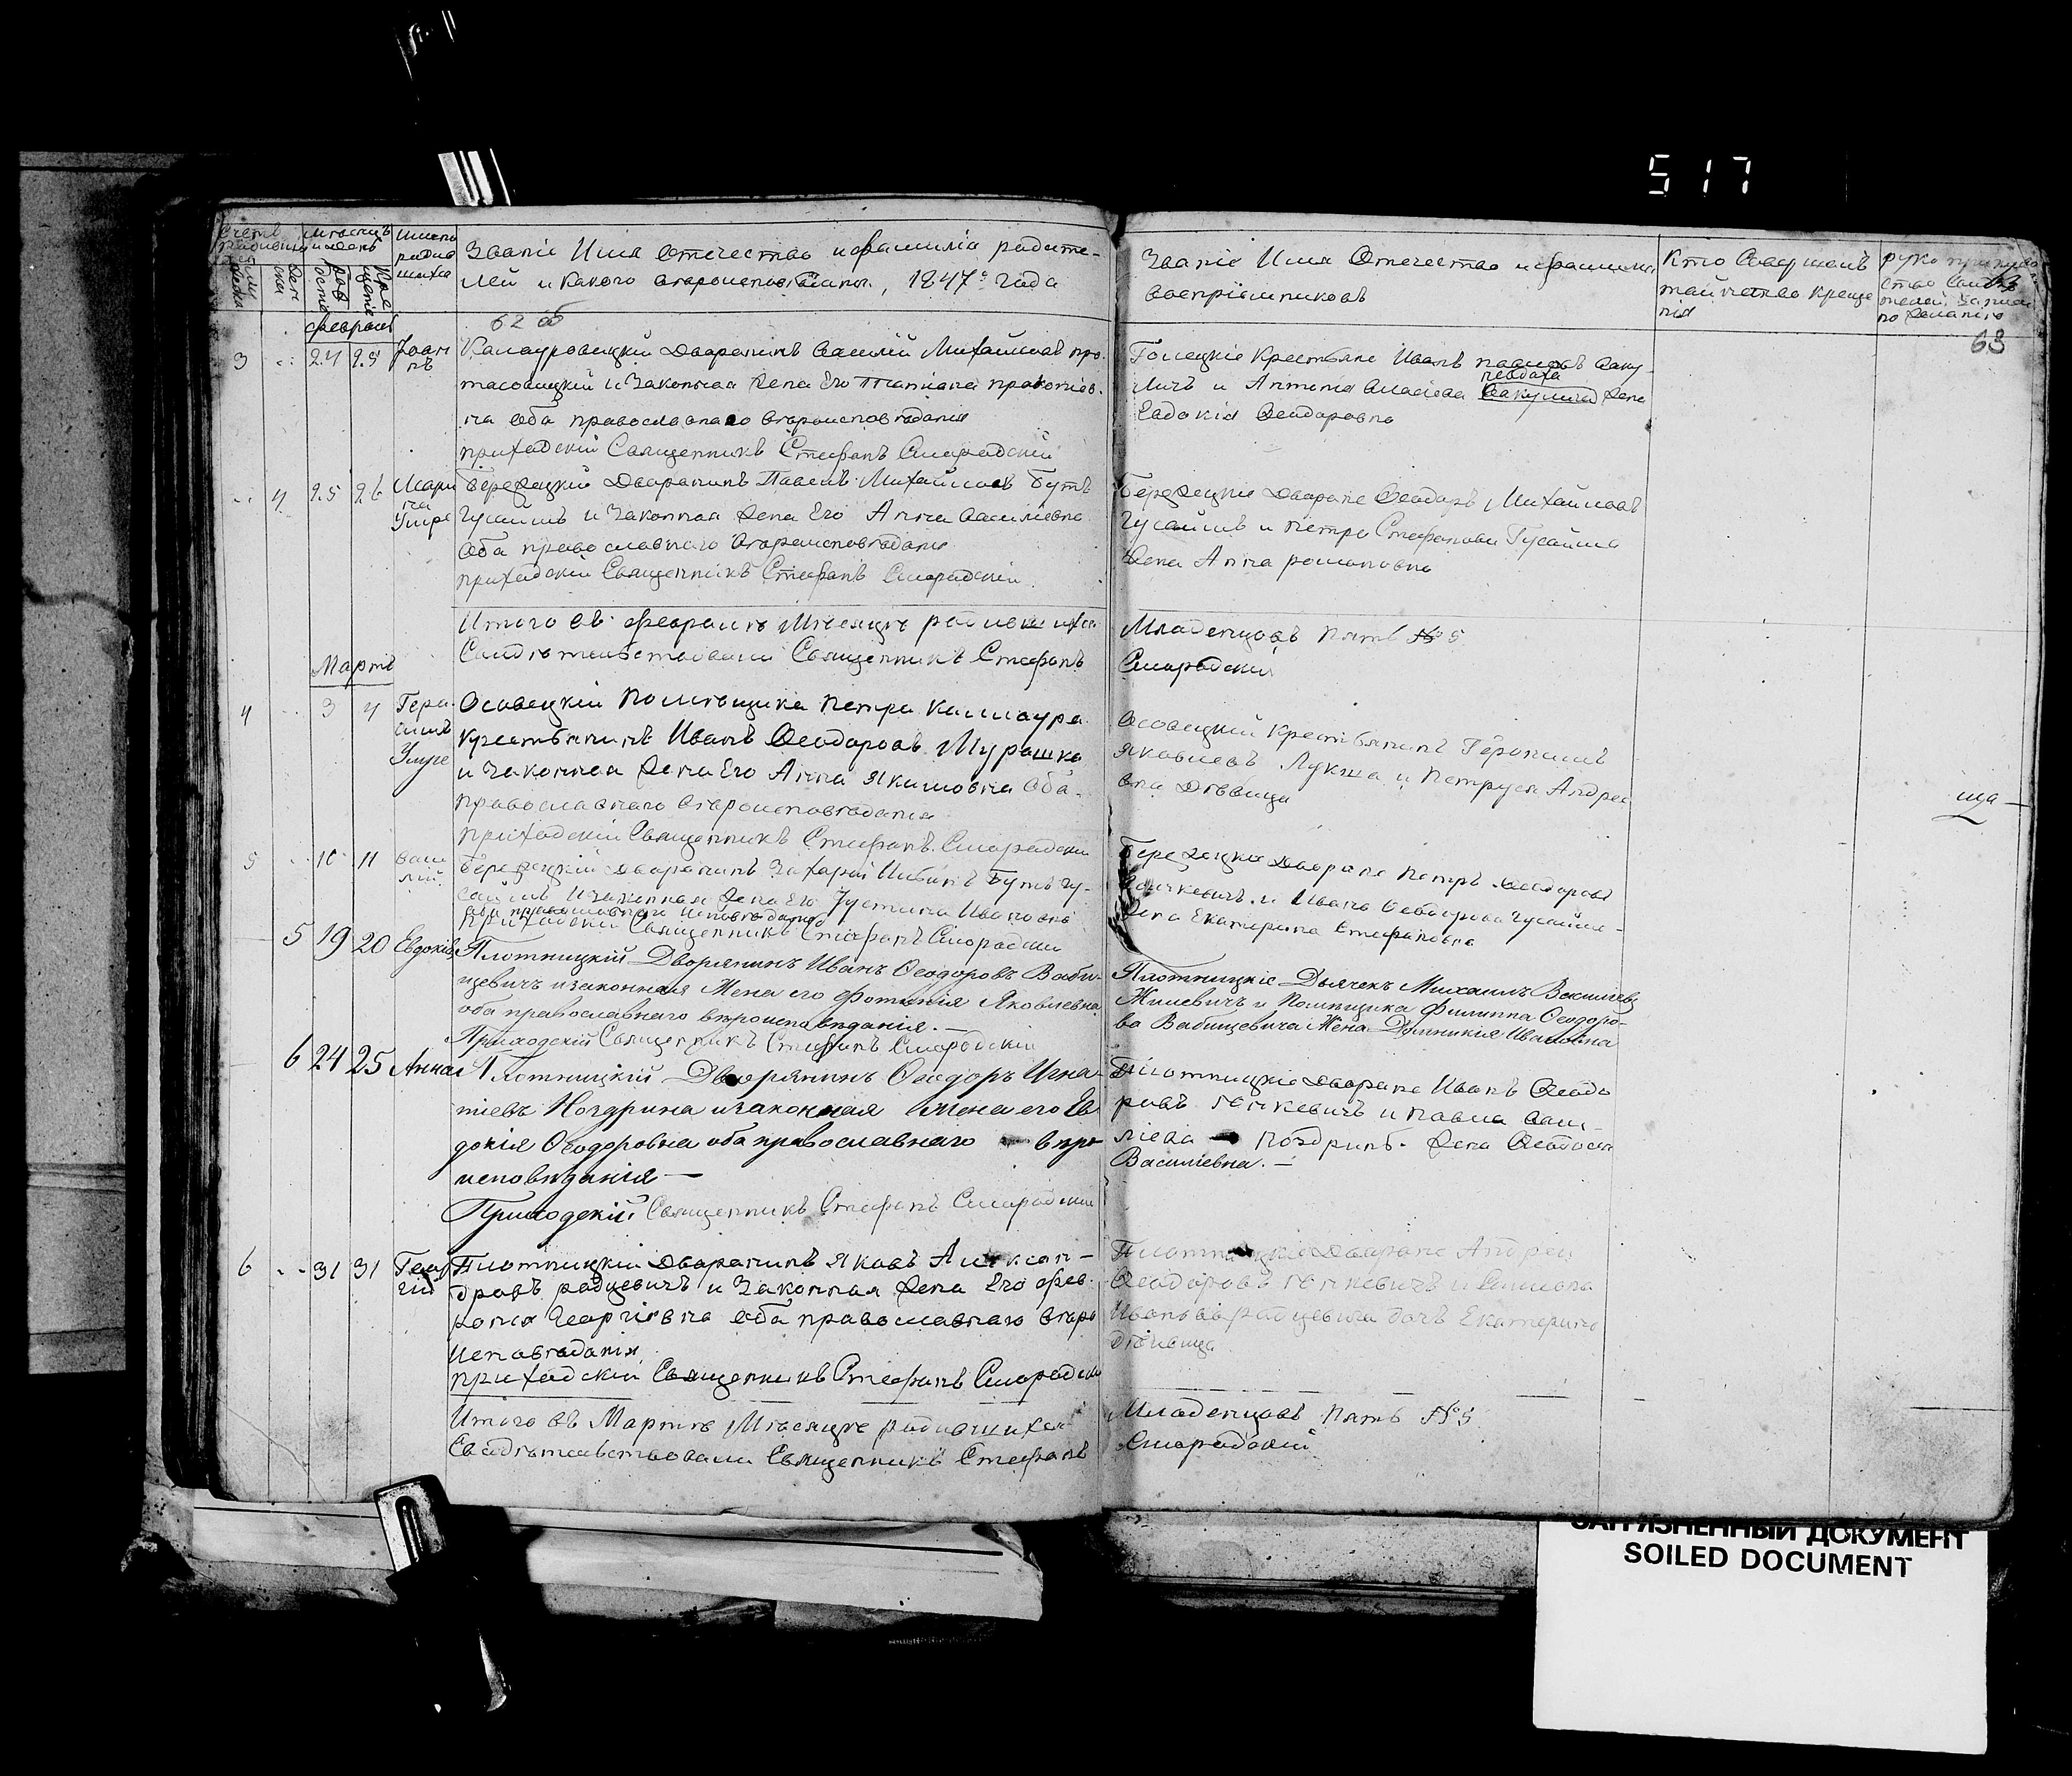 517
Счетъ родившихся
мѣсяцъ и день
Имена родившихся
Званіе Имя Отечество и фамиліа родите-
лей и какого вѣроисповѣданія, 1847го года
62 об
Званіе Имя Отечество и фамилиа
воспріемниковъ
Кто Совершалъ
таинство креще
нія
63
Февраль
3 24 25 Іоаннъ
Калауровецкій Дворанинъ Василій Михайловъ про-
тасовицкій и Законная Жена Его Татіана прокопіев-
на оба православнаго вѣроисповѣданія
приходскій Священникъ Стефанъ Смородскій
Голецкіе Крестьяне Иванъ Ваку-
личъ и Антона Власіева Жена
Евдокія Ѳеодоровна
4 25 26 Мари
на
Умре
Бережецкій Дваранинъ Павелъ Михайловъ Бутъ
Гусаимъ и Законная Жена Его Анна Василіевна
Оба православнаго вѣроисповѣданія
приходскій Священникъ Стефанъ Смородскій
Бережецкіе Дваране Ѳеодоръ Михайловъ
Гусаимъ и Петра Стефанова Гусаима
Жена Анна романовна
Итого въ февралѣ Мѣсяцѣ родившихся
Свидѣтельствовали Священникъ Стефанъ
Младенцовъ пять №5
Смородскій
Мартъ
4 3 4 Гера
симъ
Умре
Осовецкій Помѣщика Петра Каллаура
Крестьянинъ Иванъ Ѳеодоровъ Мурашка
и Законная Жена Его Анна Якимовна Оба
православнаго вѣроисповѣданія
приходскій Священникъ Стефанъ Смородскій
Осовецкій Крестьянинъ Геронимъ
Яковлевъ Лукша и Петруся Андрее
вна Дѣвица
ща
5 10 11 Васи
лій
Бережецкій Дваранинъ Захарій Ивановъ Бутъ Гу-
саимъ и Законная Жена Его Іустина Ивановна
оба православнаго исповѣданія
приходскій Священникъ Стефанъ Смородскій
Бережецкіе Дваране Петръ Ѳеодоровъ
и Ивана Ѳеодорова Гусаима
Жена Екатерина Стефановна
5 19 20 Евдокія
Плотницкій Дворянинъ Иванъ Ѳеодоровъ Ваби-
щевичъ и законная Жена его Фотинія Яковлевна
оба православнаго вѣроисповѣданія. —
Приходскій Священникъ Стефанъ Смородскій
Плотницкіе Дьячекъ Михаилъ Василіевъ
Жилевичъ и Помѣщика Филиппа Ѳеодоро-
ва Вабищевича Жена Думникія Ивановна
6 24 25 Анна
Плотницкій Дворянинъ Ѳеодоръ Игна-
тіевъ Ноздрина и законная Жена его Ев
докія Ѳеодоровна оба православнаго вѣро-
исповѣданія —
Приходскій Священникъ Стефанъ Смородскій
Плотницкіе Дворане Иванъ Ѳеодо
ровъ и Павла Васи-
ліева Ноздринъ Жена Ѳеодосія
Василіевна. —
6 31 31 Геор
гій
Плотницкій Дворанинъ Яковъ Алексан-
дровъ радцевичъ и Законная Жена Его Фев-
ронія Георгіевна оба православнаго вѣро
исповѣданія
приходскій Священникъ Стефанъ Смородскій
Плотницкіе Дворане Андрей
Ѳеодоровъ и Симеона
Иванова радцевича дочь Екатерина
дѣвица
Итого въ Мартѣ Мѣсяцѣ родившихся
Свидѣтельствовали Священникъ Стефанъ
Младенцовъ пять №5
Смородскій
ЗАГРЯЗНЕННЫЙ ДОКУМЕНТ
SOILED DOCUMENT